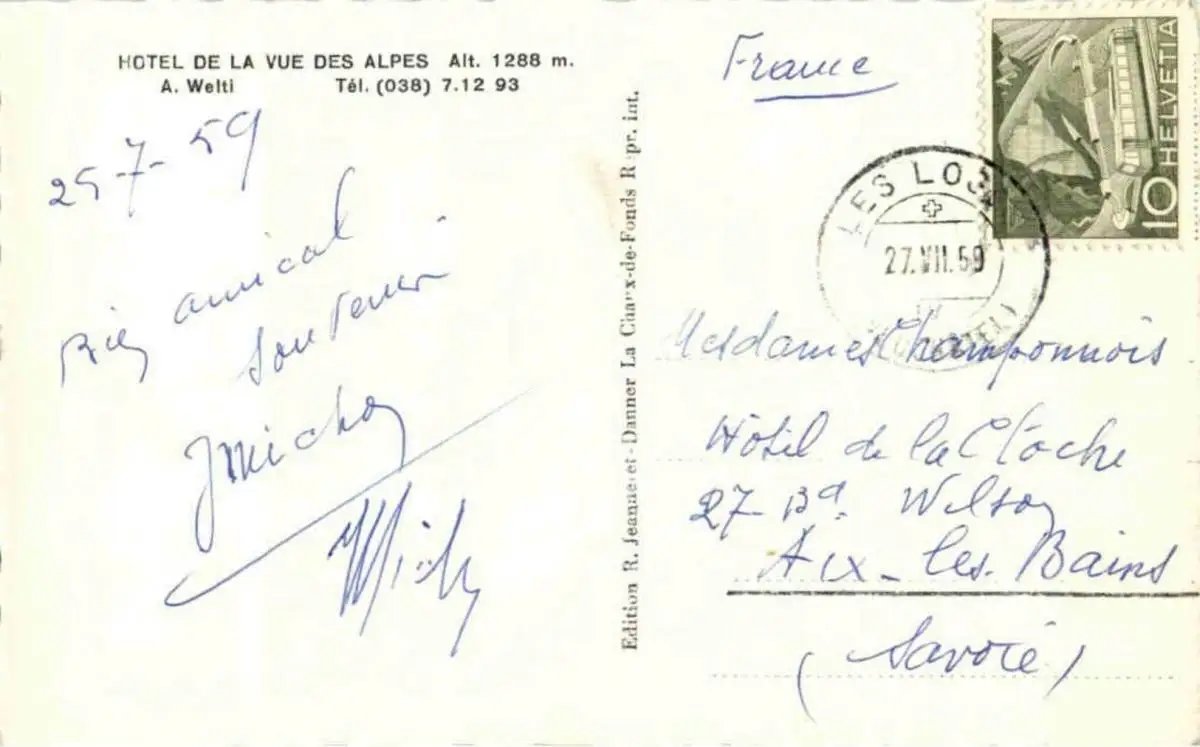 HOTEL DE LA VUE DES ALPES Alt. 1288 m.
A. Welti Tél. (038) 7.12 93
25-7-59
Bien amical
souvenir
JMichon
Edition R. Jeanneret-Danner La Chaux-de-Fonds Repr. int.
France
HELVETIA
10
LES LO
27.VII.59
Mesdames Champonnois
Hôtel de la Cloche
27 Bd. Wilson
Aix-les-Bains
(Savoie)